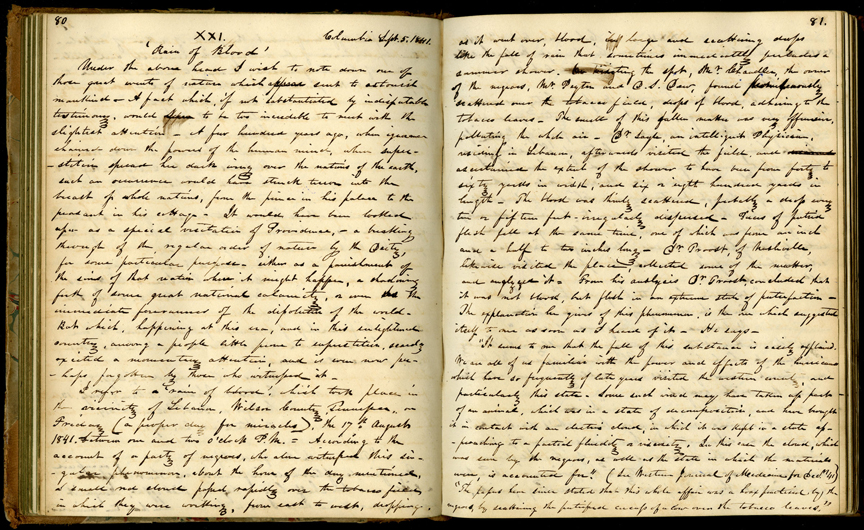 80
XXI.
Columbia Sept. 5, 1841.
'Rain of Blood'
Under the above head I wish to note down one of
three great events of nature which sent to astonish
mankind – A fact which, if not substantiated by indisputable
testimony, would to be too incredible to meet with the
slightest attention – A few hundred years ago, when ignorance
chained down the powers of the human mind, when super-
-stition spread her dark wing over the nations of the earth,
such an occurrence would have struck terror into the
breast of whole nations, from the prince in his palace to the
peasant in his cottage – It would have been looked
upon as a special visitation of Providence, – a breaking
through of the regular order of nature by the Deity,
for some particular purpose – either as a punishment of
the sins of that nation where it might happen, a shadowing
forth of some great national calamity, or even the
immediate forerunner of the of the world –
But which, happening at this era, and in this enlightened
country, among a people little prone to superstition, scarcely
excited a momentary attention, and is even now per-
-haps forgotten by those who witnessed it –
I refer to a 'rain of blood', which took place in
the vicinity of Lebanon, Wilson County Tennessee, on
Friday (a proper day for miracles), the 17th August
1841. between one and two o'clock P.M. – According to the
account of a party of negroes, who alone witnessed this sin-
-gular phenomenon, about the hour of the day mentioned,
a small red cloud passed rapidly over the tobacco field
in which they were working, from east to west, dropping,
81.
as it went over, blood, in large and scattering drops
like the fall of rain that sometimes immediately precedes a
summer shower. the spot, Mr. Chandler, the owner
of the negroes, Mr. Peyton and C. S. found
scattered over the tobacco field, drops of blood, adhering to the
tobacco leaves – The smell of this fallen matter was very offensive,
polluting the whole air – Dr. Sayle, an intelligent Physician,
residing in Lebanon, afterwards visited the field, and
ascertained the extent of the shower to have been from forty to
sixty yards in width, and six or eight hundred yards in
length – The blood was thinly scattered, probably a drop every
ten or fifteen feet – irregularly dispersed – Pieces of putrid
flesh fell at the same time, one of which was from an inch
and a half to two inches long – Dr. Troost, of Nashville,
likewise visited the place, collected some of the matter,
and analyzed it – From his analysis Dr. Troost concluded that
it was not blood, but flesh in an extreme state of putrefaction –
The explanation he gives of this phenomenon, is the one which suggested
itself to me as soon as I heard of it – He says –
"It seems to me that the fall of this substance is easily explained.
We are all of us familiar with the power and effects of the hurricane
which have so frequently of late years visited the western country, and
particularly this state – Some such wind may have taken up part
of an animal, which was in a state of decomposition, and have brought
it in contact with an electric cloud, in which it was kept in a state ap-
-proaching to a partial fluidity or viscosity. In this case the cloud, which
was seen by the negroes, as well as the state in which the materials
were, is accounted for." (See Western Journal of Medicine for Oct. '41)
"The papers have since stated that this whole affair was a hoax practised by the
negroes, by scattering the putrefied carcass of a cow over the tobacco leaves."